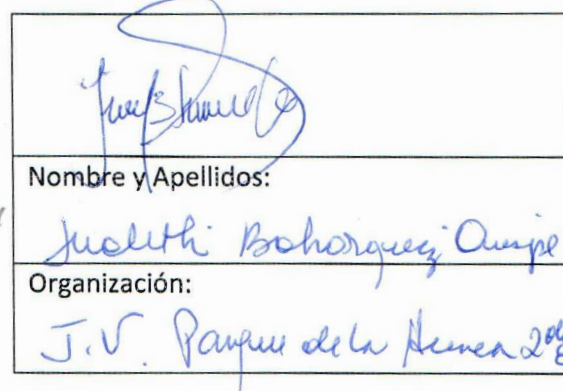 Nombre y Apellidos:
Judith Bohorquez Quispe
Organización:
J.V. Parque de la 2da